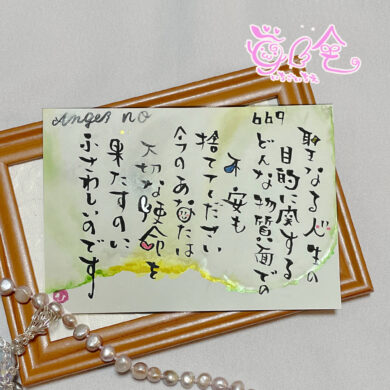 Angel no
669
聖なる人生の
目的に関する
どんな物質面での
不安も
捨ててください
今のあなたは
大切な使命を
果たすのに
ふさわしいのです